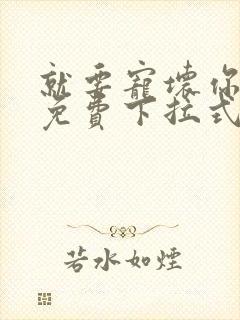 就要寵壞你
免費下拉式
若水如煙